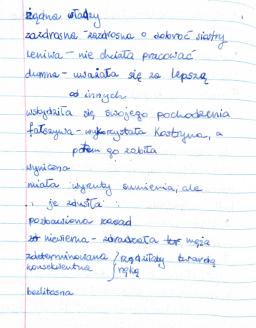 żądna władzy
zazdrosna - zazdrosna o dobroć siostry
leniwa - nie chciała pracować
dumna - uważała się za lepszą
od innych
wstydziła się swojego pochodzenia
fałszywa - wykorzystała Kostryna, a
potem go zabiła
wyniosła
miała wyrzuty sumienia, ale
je zdusiła
pozbawiona zasad
niewierna - zdradzała męża
zdeterminowana / rządziła twardą
konsekwentna ręką
bezlitosna